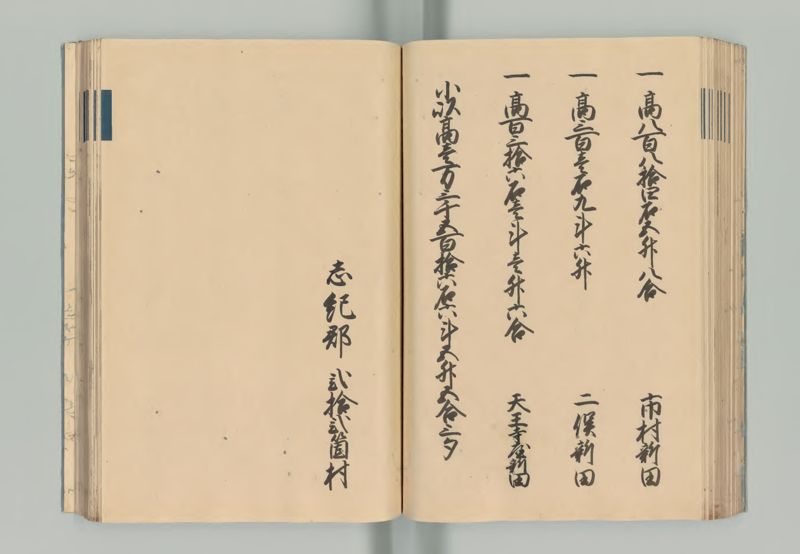 一 高八百八拾四石五升八合 市村新田
一 高三百壱石九斗六升 二俣新田
一 高百三拾六石壱斗壱升六合 天王寺屋新田
小以高壱万三千五百拾六石六斗五升五合三夕
志紀郡 弐拾弐箇村